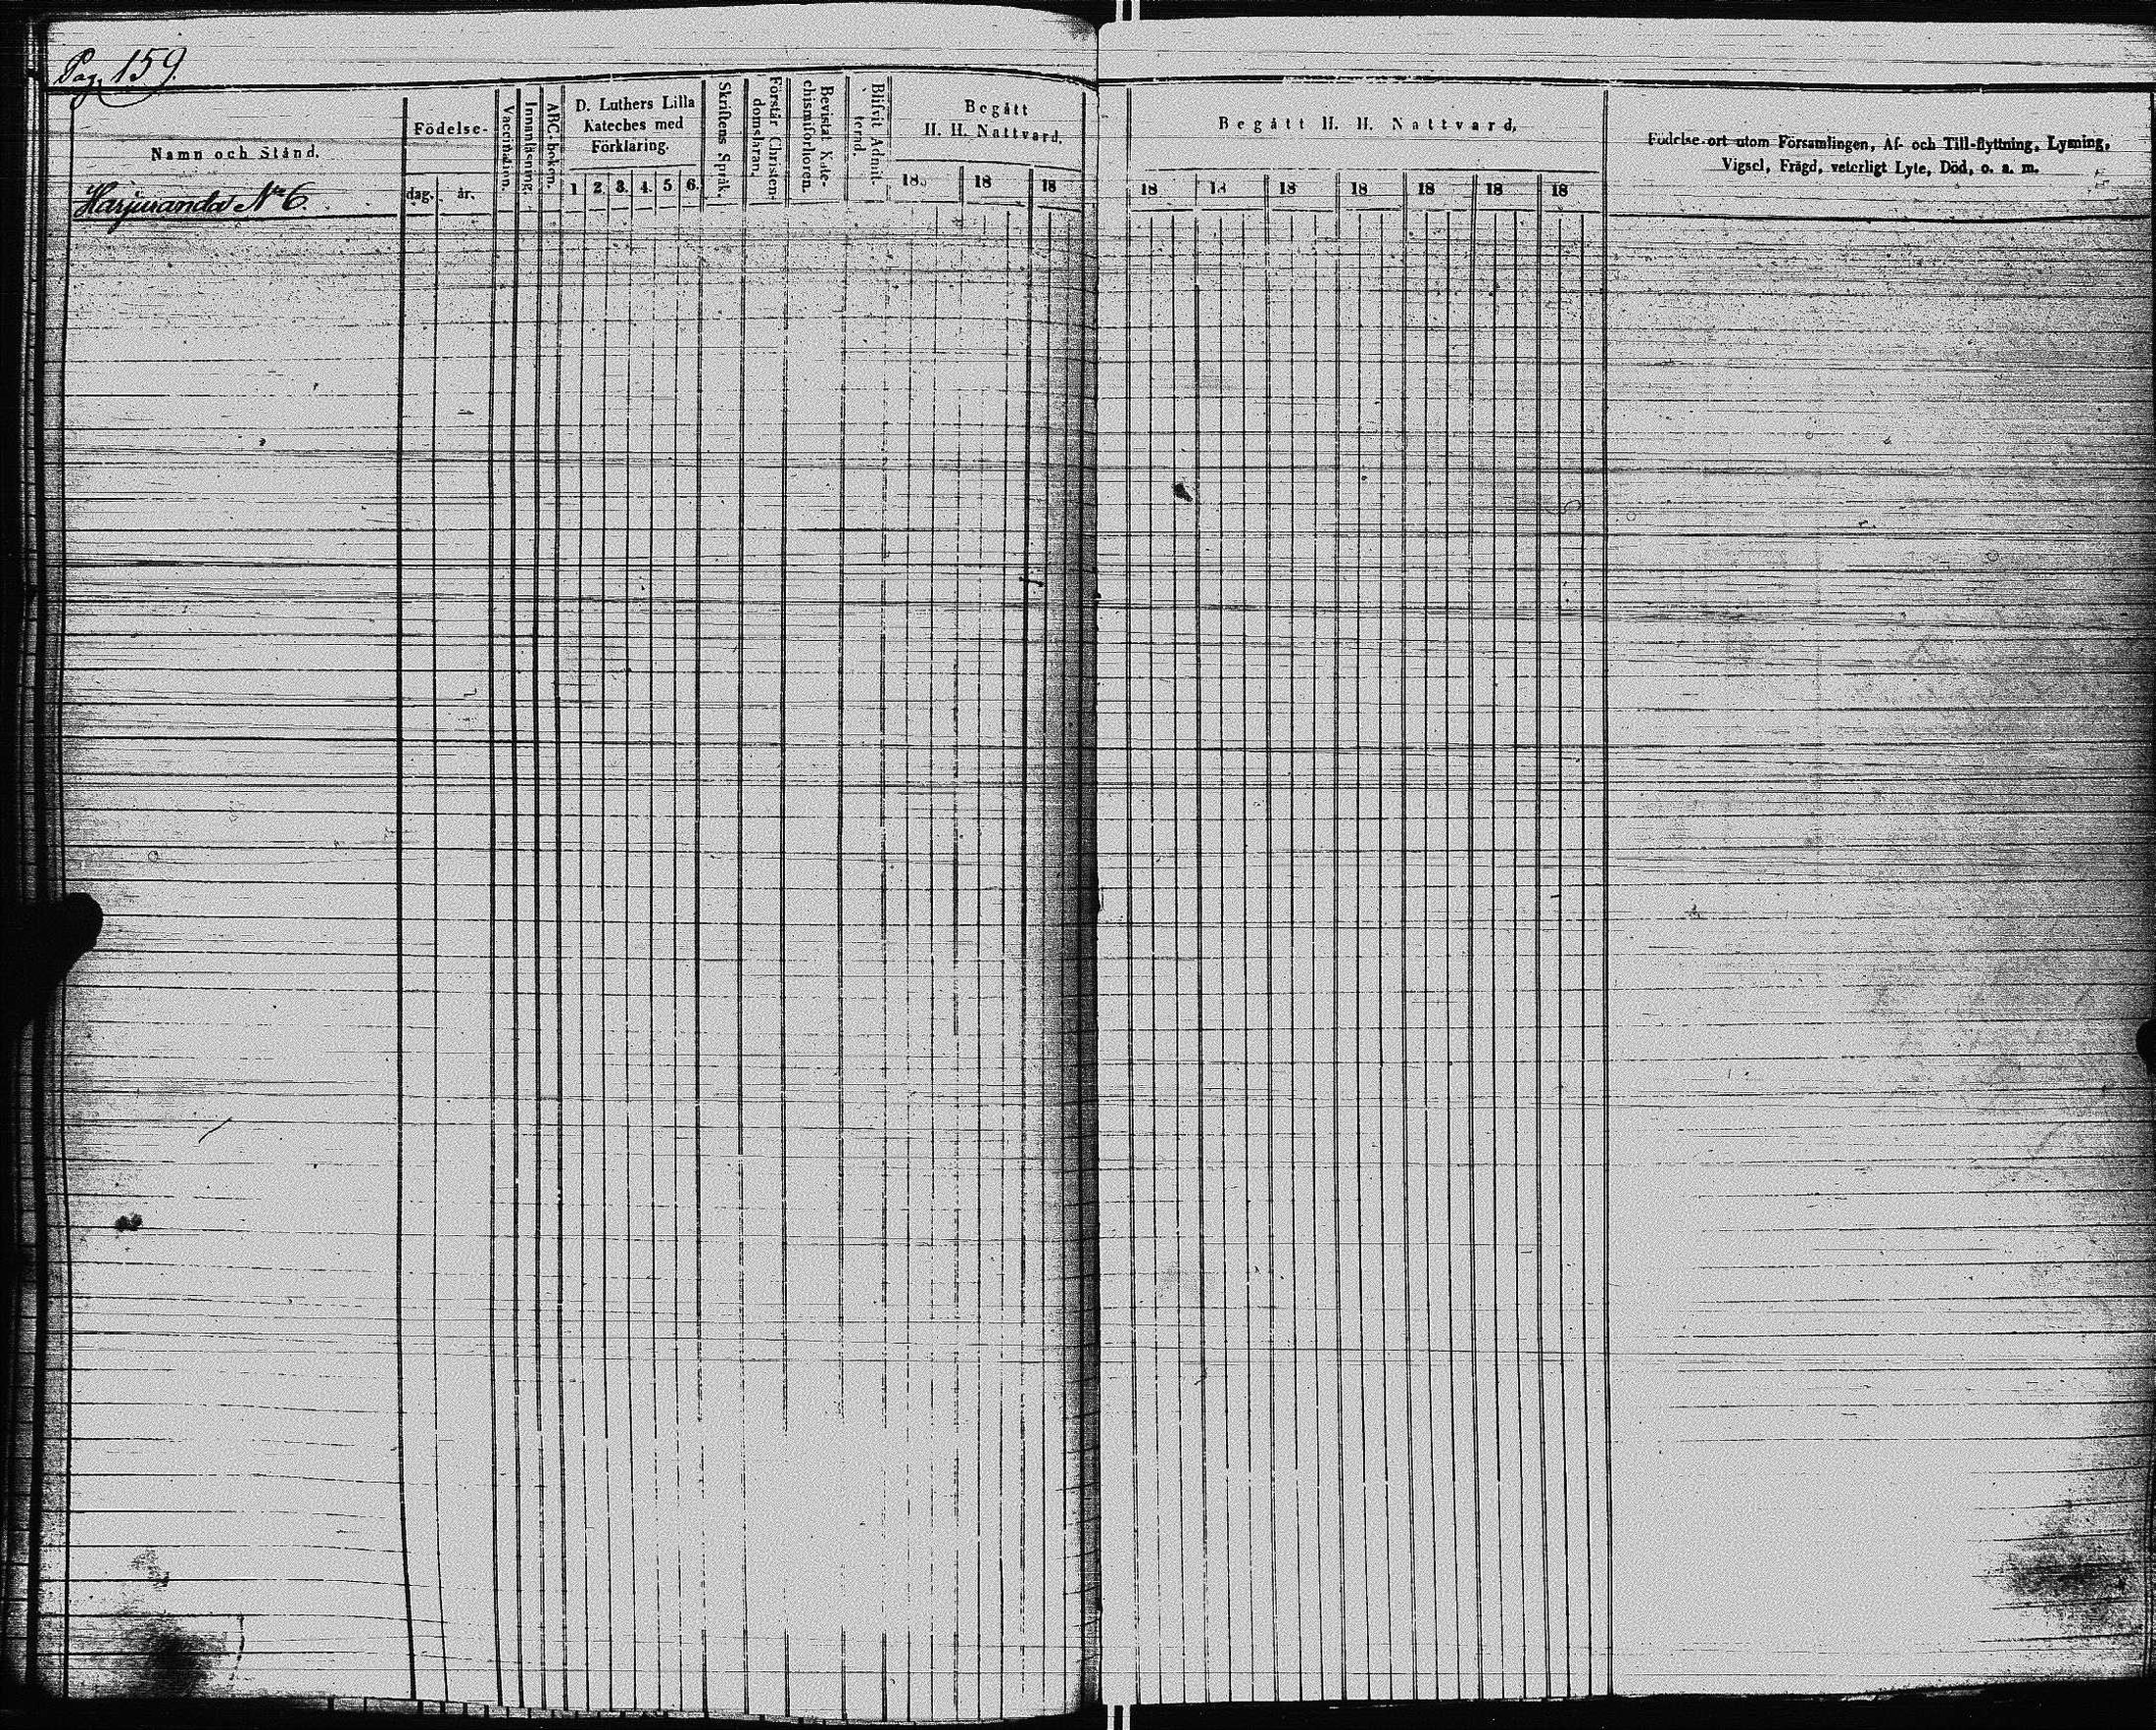 Pag. 159.
Namn och Stånd.
Harjuranda No 6.
Födelse-
dag. år.
Vaccination.
Innanläsning.
ABC-boken.
D. Luthers Lilla
Kateches med
Förklaring.
1 2. 3. 4. 5 6.
Skriftens Språk.
Förstår Christen-
domsläran.
Bevistat Kate-
chismiförhören.
Blifvit Admit-
terad.
Begått
H. H. Nattvard.
18 18 18
Begått H. H. Nattvard.
18 18 18 18 18 18 18
Födelse-ort utom Församlingen, Af- och Till-flyttning, Lysning,
Vigsel, Frägd, veterligt Lyte, Död, o. s. m.